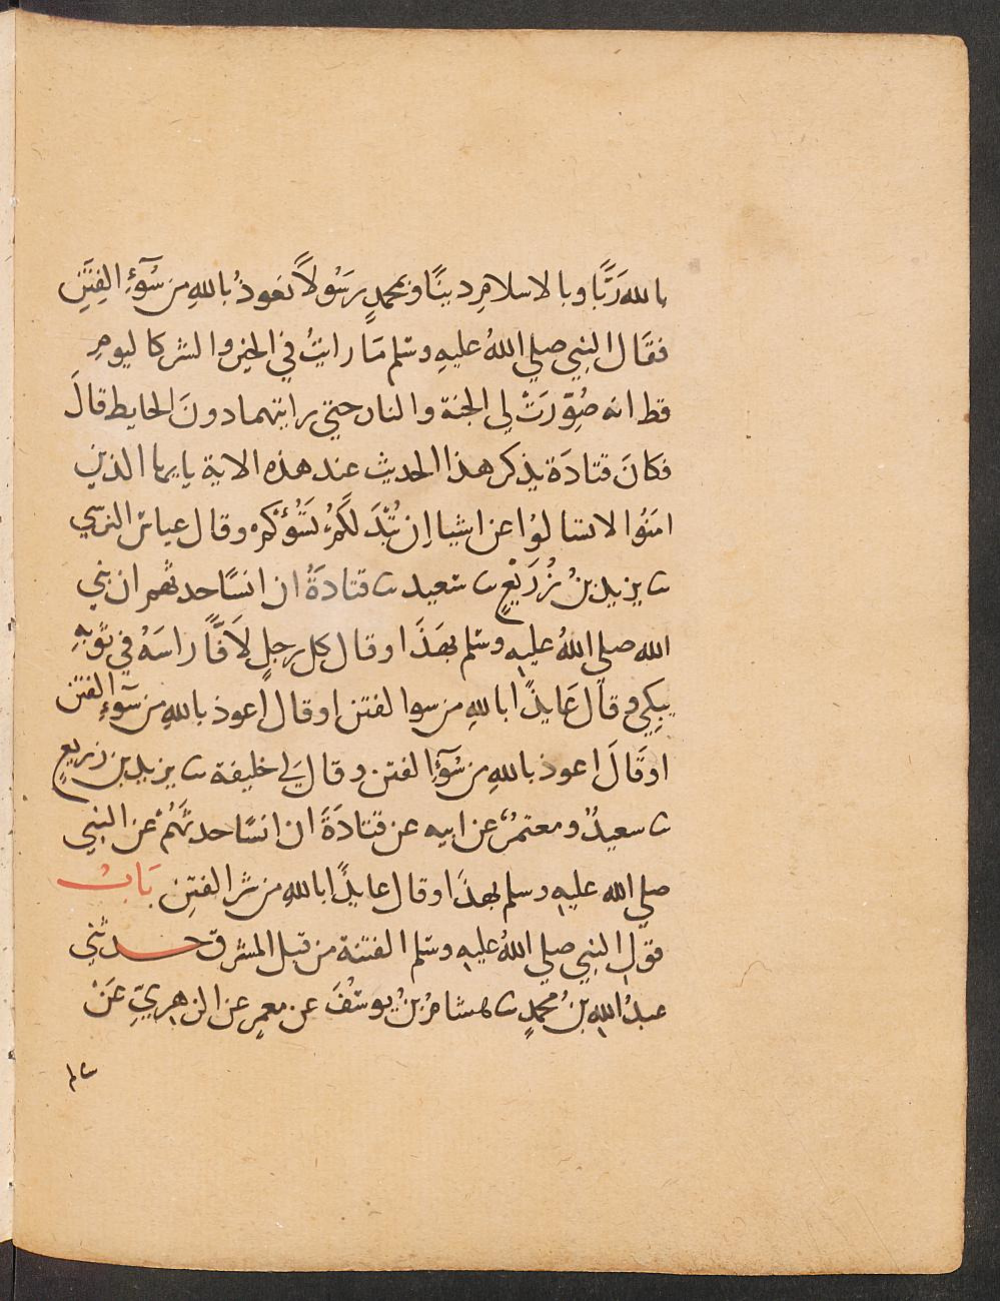 بالله رَبًّا وبالاسلامِ دينًا وبمحمدٍ رسُولًا نعوذُ باللهِ من سُوٓءِ الفِتَنِ
فقَال النبي صلي اللهُ عليهِ وسلم مَا رايتُ في الخيرِ والشر كاليومِ
قط انه صُوِّرَتْ لي الجنة والنار حتي رايتهما دونَ الحايط قالَ
فكانَ قتادَة يذكر هذا الحديث عند هذه الاية يايها الذين
امَنُوا لا تسالوُا عن اشيا اِن تُبْدَ لَكُمْ تَسُؤْكم وقال عباس النرسي
ثنا يزيد بنُ زُرَيْعٍ ثنا سعيد ثنا قتادَةُ ان انسًا حدثهم ان نبي
الله صلي اللهُ عليهِ وسلم بهَذَا وقال كل رجلٍ لَافًّا راسَهُ في ثوبهِ
يبكي وقال عَايذًا باللهِ من سوا لفتن او قال اعوذ باللهِ من سَوءِ الفتن
او قَالَ اعوذ باللهِ من سُوٓءِ الفتن وقال لِي خليفة ثنا يزيد بن زريعٍ
ثنا سعيدٌ ومعتمرٌ عن ابيه عن قتادَةَ ان انسًا حدثَهُمْ عن النبي
صلي الله عليهِ وسلم بهذَا وقال عايذًا باللهِ من شر الفتنِ بَابُ
قول النبي صلي اللهُ عليهِ وسلم الفتنة من قبل المشرق حدثني
عبدُ اللهِ بنُ محمدٍ ثنا هشامُ بنُ يوسُفَ عن معمرٍ عن الزهريِّ عَنْ
سالم